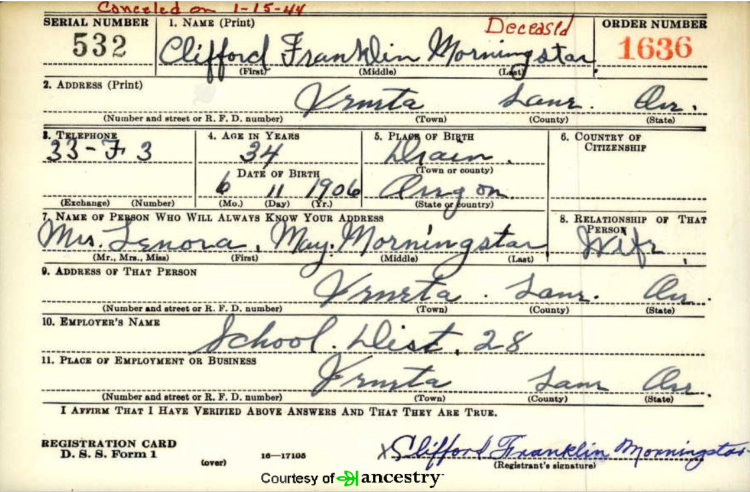 Canceled on 1-15-44
SERIAL NUMBER 1. NAME (Print) Deceased ORDER NUMBER
532 Clifford Franklin Morningstar 1636
(First) (Middle) (Last)
2. ADDRESS (Print)
Veneta Lane. Ore.
(Number and street or R. F. D. number) (Town) (County) (State)
3. TELEPHONE 4. AGE IN YEARS 5. PLACE OF BIRTH 6. COUNTRY OF CITIZENSHIP
33-F3 34 Drain.
DATE OF BIRTH (Town or county)
6 11 1906 Oregon
(Exchange) (Number) (Mo.) (Day) (Yr.) (State or country)
7. NAME OF PERSON WHO WILL ALWAYS KNOW YOUR ADDRESS 8. RELATIONSHIP OF THAT PERSON
Mrs. Lenora. May. Morningstar Wife.
(Mr., Mrs., Miss) (First) (Middle) (Last)
9. ADDRESS OF THAT PERSON
Veneta. Lane. Ore.
(Number and street or R. F. D. number) (Town) (County) (State)
10. EMPLOYER'S NAME
School. Dist. 28
11. PLACE OF EMPLOYMENT OR BUSINESS
Veneta Lane Ore.
(Number and street or R. F. D. number) (Town) (County) (State)
I AFFIRM THAT I HAVE VERIFIED ABOVE ANSWERS AND THAT THEY ARE TRUE.
REGISTRATION CARD
D. S. S. Form 1 (over) 16—17105 X Clifford Franklin Morningstar
(Registrant's signature)
Courtesy of ancestry